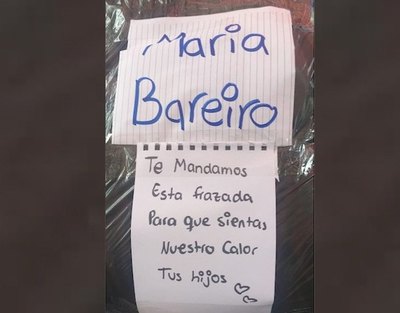 Maria
Bareiro
Te Mandamos
Esta frazada
Para que sientas
Nuestro Calor
Tus hijos